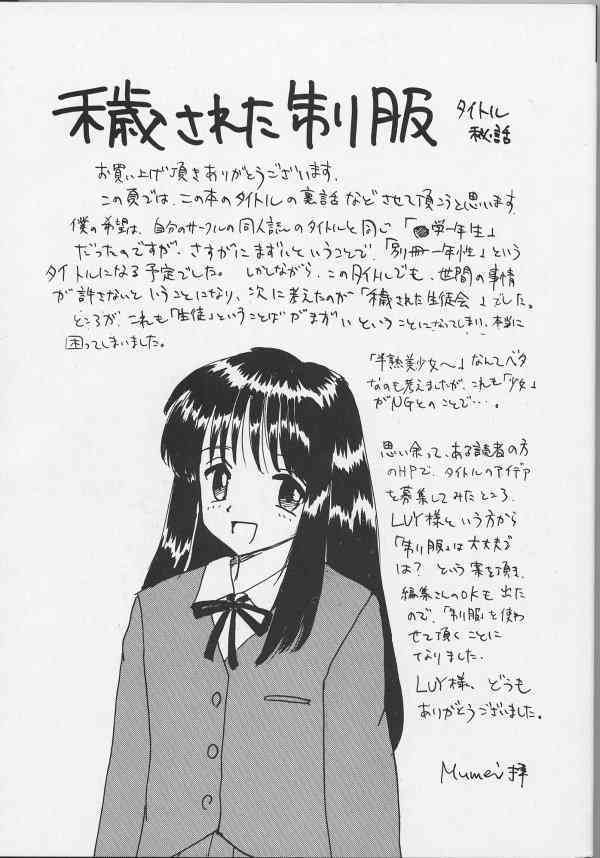 穢された制服
タイトル
秘話
お買い上げ頂きありがとうございます。
この頁では、この本のタイトルの裏話などさせて頂こうと思います
僕の希望は、自分のサークルの同人誌のタイトルと同じ「学一年生」
だったのですが、さすがにまずいということで、「別冊一年性」という
タイトルになる予定でした。しかしながら、このタイトルでも、世間の事情
が許さないということになり、次に考えたのが「穢された生徒会」でした。
ところが、これも「生徒」ということばがまずいということになってしまい、本当に
困ってしまいました。
「半熟美少女〜」なんてベタ
なのも考えましたが、これも「少女」
がNGとのことで…。
思い余って、ある読者の方
のHPで、タイトルのアイデア
を募集してみたところ、
LUY様という方から
「制服」は大丈夫で
は?という案を頂き、
編集さんのOKも出た
ので、「制服」を使わ
せて頂くことに
なりました。
LUY様、どうも
ありがとうございました。
Mumei拝